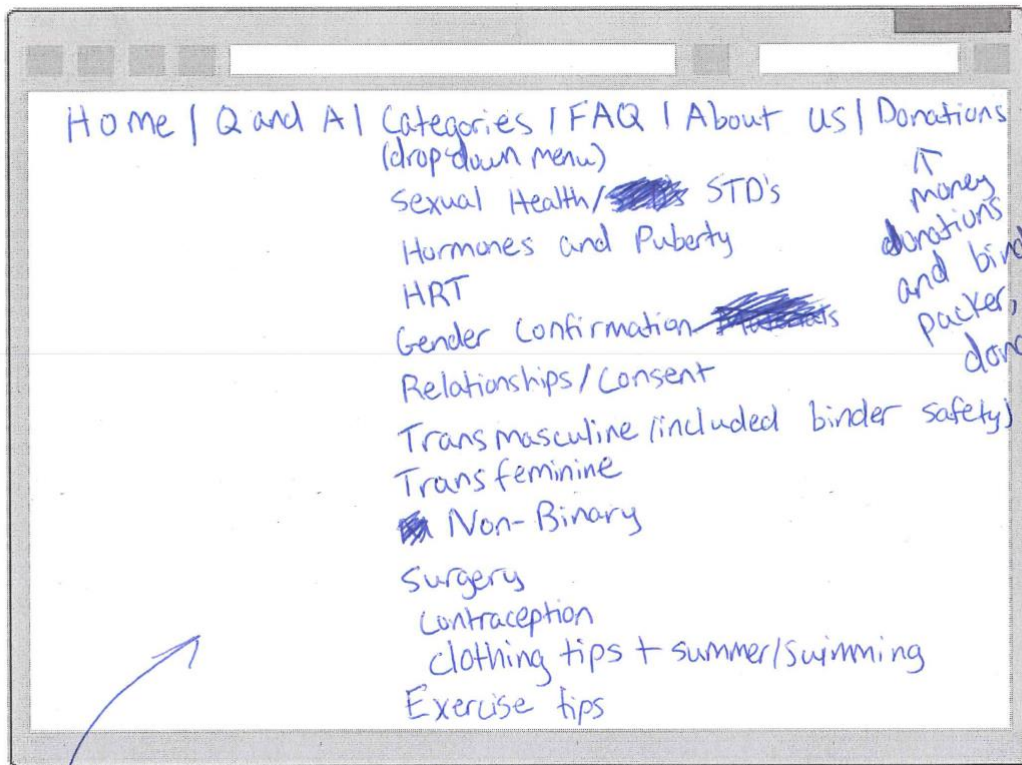 Home | Q and A | Categories | FAQ | About us | Donations
(drop down menu)
Sexual Health/ STD's
Hormones and Puberty
HRT
Gender Confirmation
Relationships/Consent
Transmasculine (included binder safety)
Transfeminine
Non-Binary
Surgery
Contraception
clothing tips + summer/swimming
Exercise tips
money
donations
and
packer,